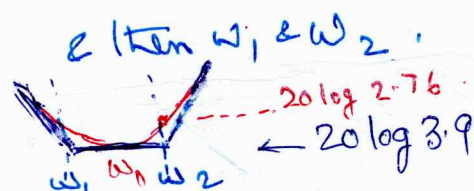 & then ω₁ & ω₂.
20 log 2.76
← 20 log 3.9
ω₁ ωₙ ω₂